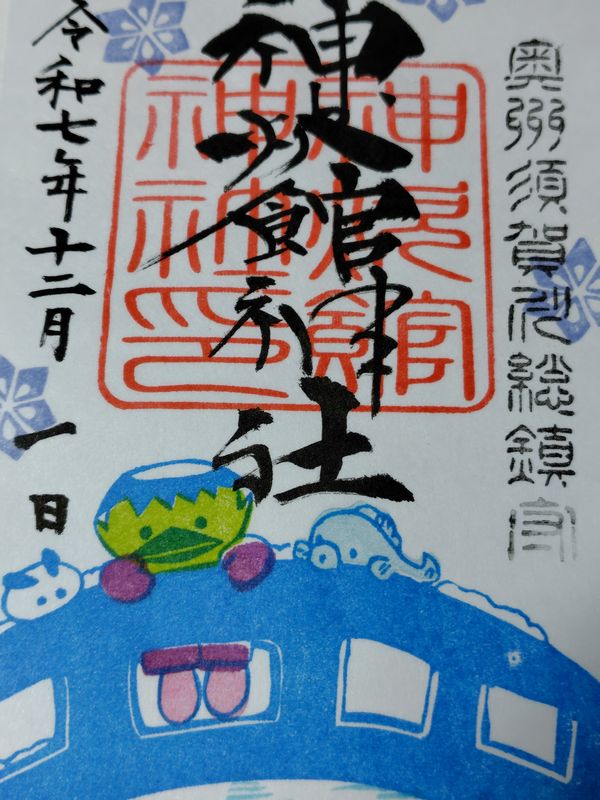 奥州須賀川総鎮守
神炊館神社
神炊館
神社印
令和七年十二月一日